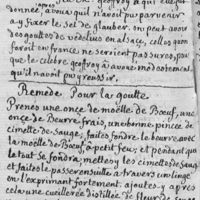 donnée, a vous qui n'avoit pu parvenir
a y fixer le sel de glauber. on peut avoir
des goutes de vedelius en alsace, celles qu'on
feroit en france ne seroient pas sures, puis
que le celebre geoffroy a avoué modestement
qu'il n'avoit pu y reussir.
Remede Pour la goutte
Prenes une once de moëlle de Bœuf, une
once de Beurre frais, une bonne pincée de
cimette de Sauge, faites fondre le beurre avec
la moëlle de Bœuf à petit feu; et pendant que
le tout se fondra, mettes y les cimettes de Sauge
et faites le passer ensuitte a travers un linge
en l'exprimant fortement. ajoutes y après
cela une cueillerée distillée de fleur de